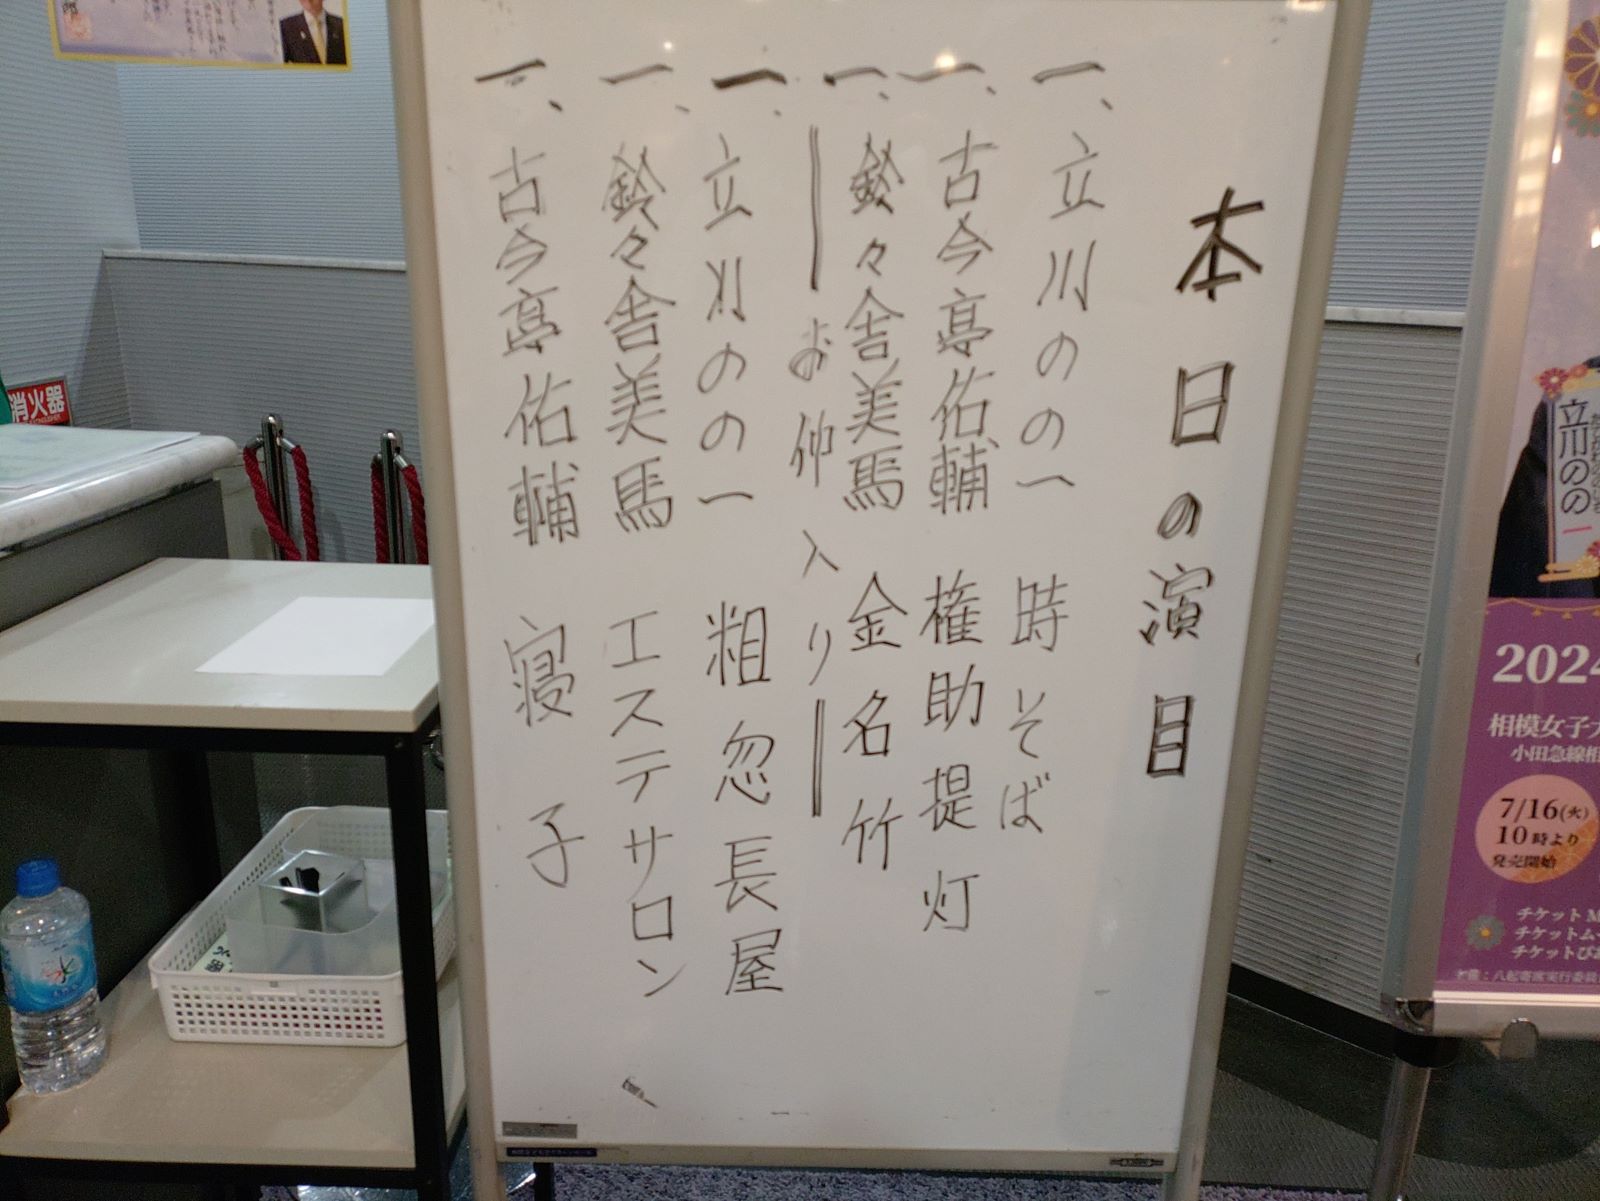 本日の演目
一、立川のの一 時そば
一、古今亭佑輔 権助提灯
一、鈴々舎美馬 金名竹
お仲入り
一、立川のの一 粗忽長屋
一、鈴々舎美馬 エステサロン
一、古今亭佑輔 寝子
消火器
立川のの一
2024
相模女子大
小田急線相
7/16(火)
10時より
発売開始
チケットM
チケットム
チケットぴ
主催：八起寄席実行委員